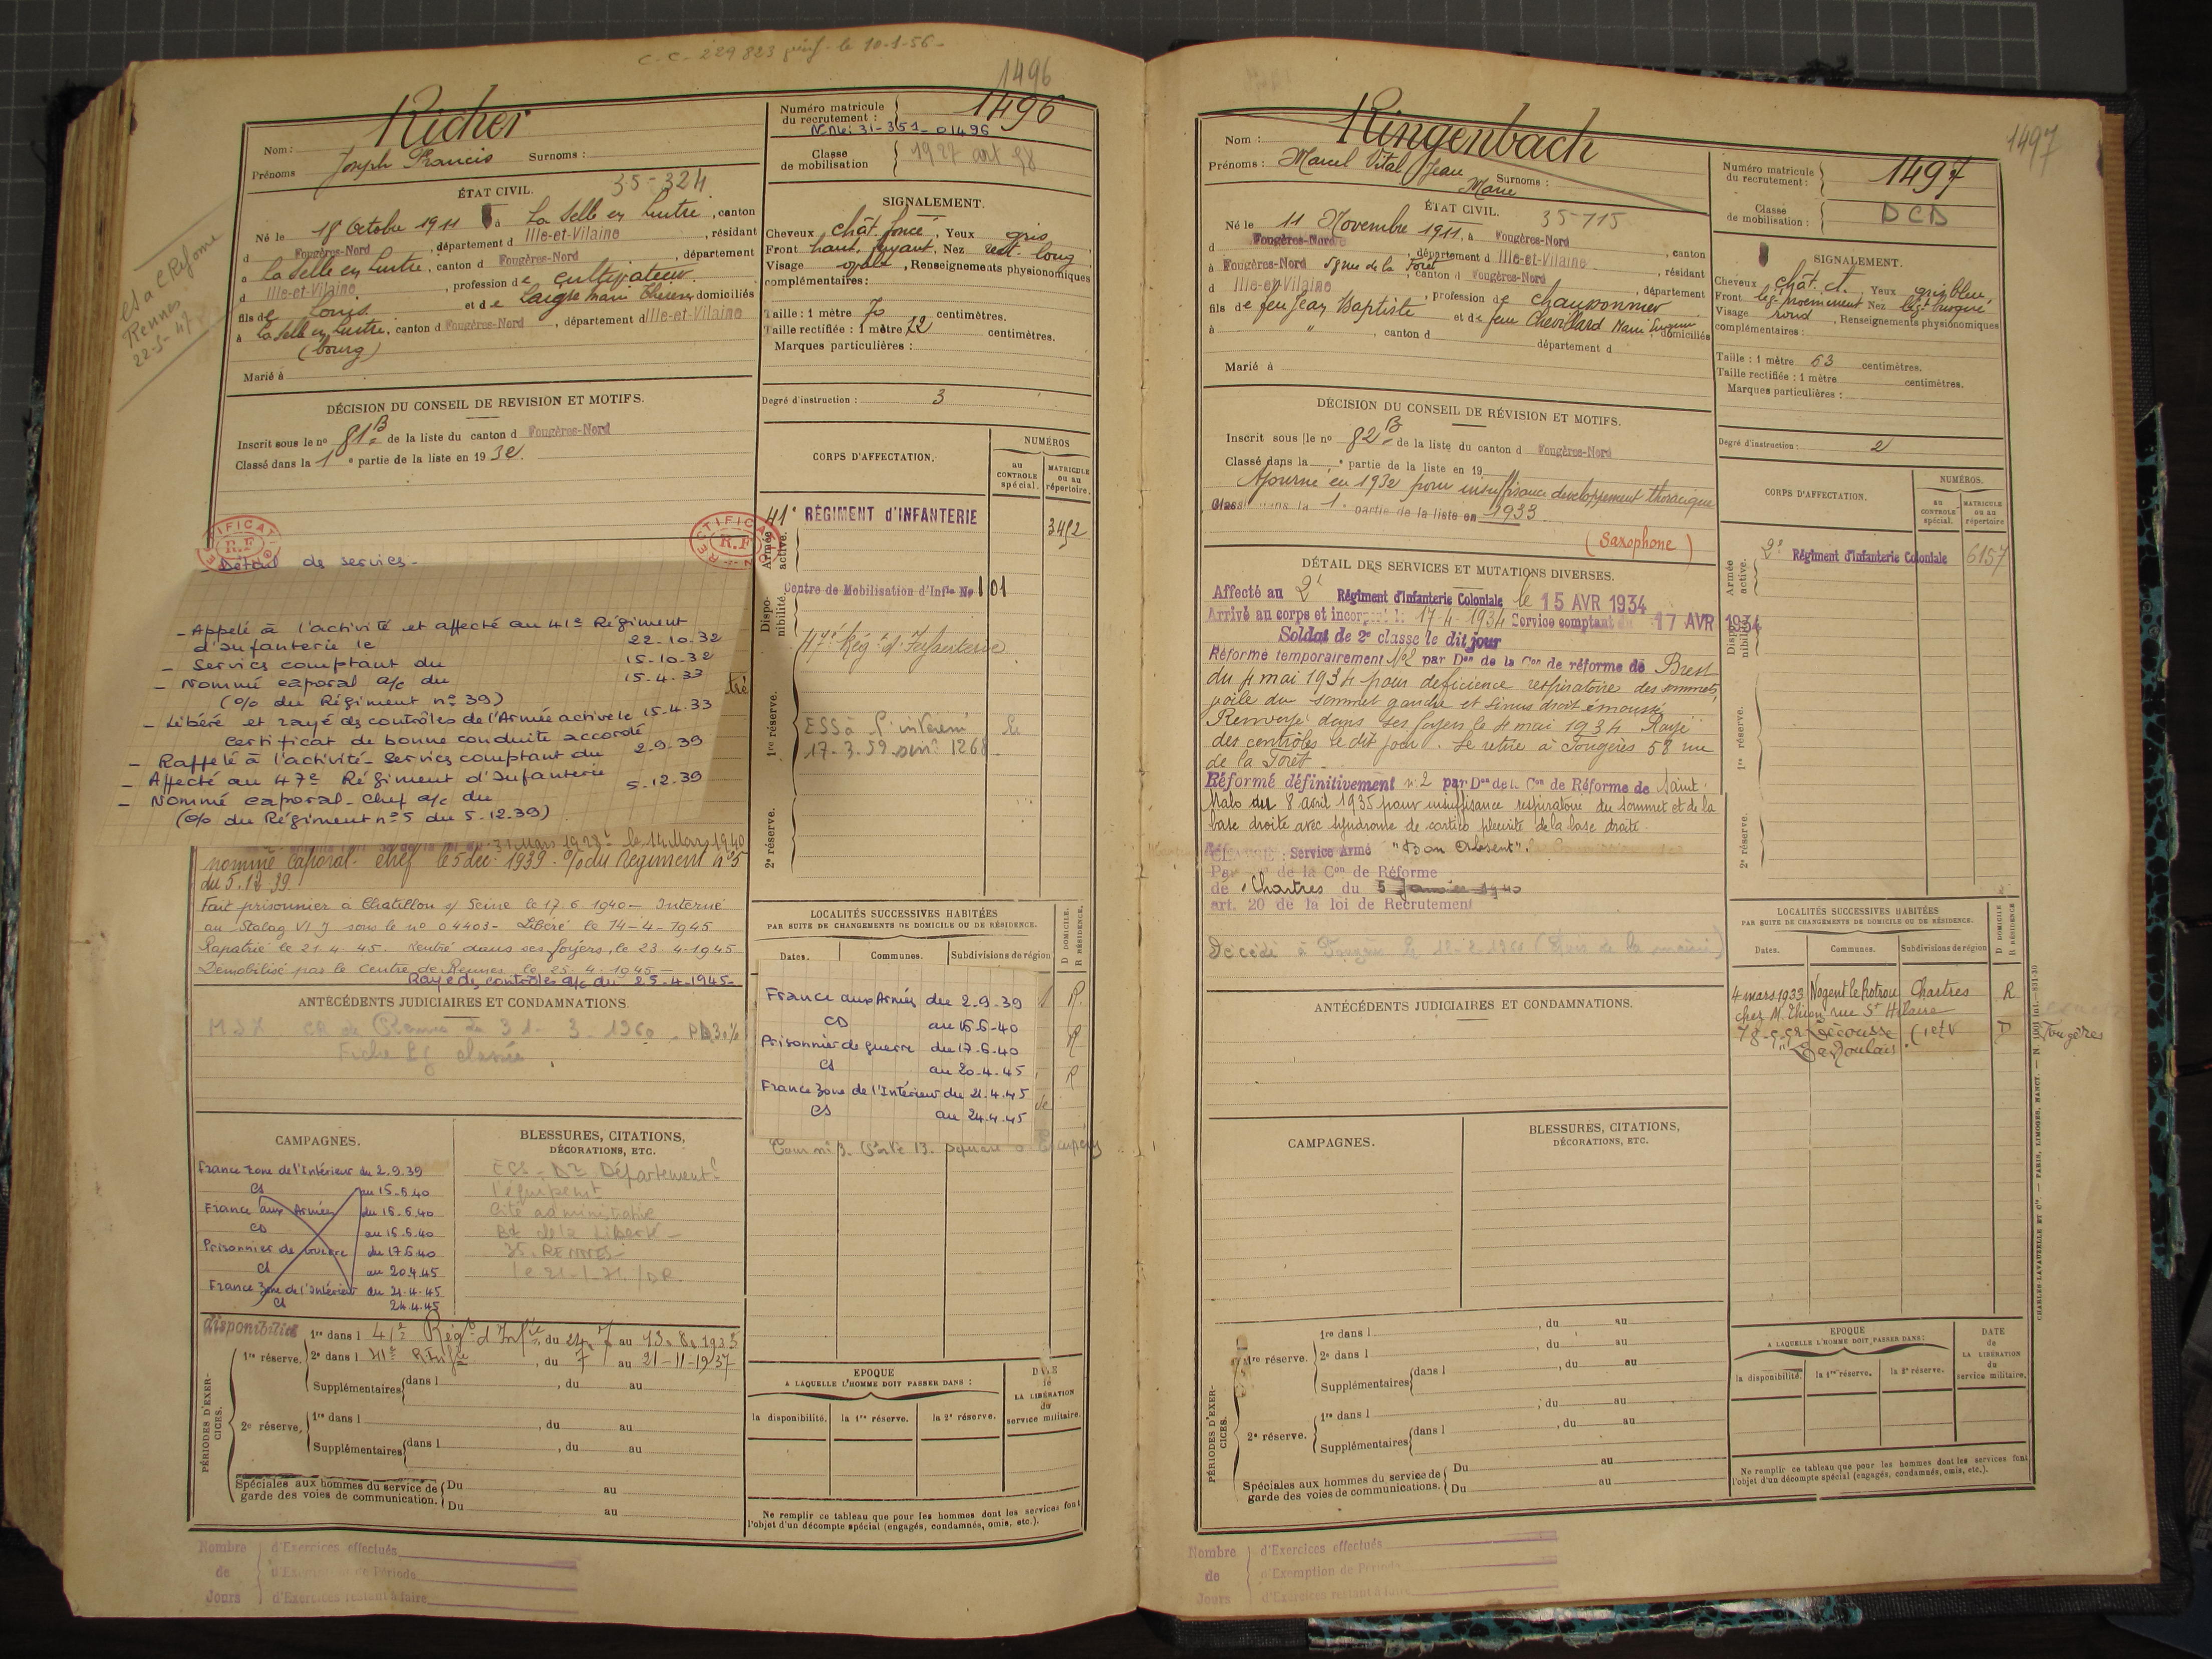 C.C. 229 823 le 10-1-56
1496
Richer
Nom :
Joseph Francis
Prénoms
Surnoms :
Numéro matricule du recrutement :
1496
N. Nle: 31-351-01496
Classe de mobilisation
1927 art 58
ÉTAT CIVIL.
35-324
Né le 18 Octobre 1911 à La Selle en Luitré, canton
d Fougères-Nord, département d Ille-et-Vilaine, résidant
à La Selle en Luitré, canton d Fougères-Nord, département
d Ille-et-Vilaine, profession de cultivateur
fils de Louis et de Laigre Marie Thérèse domiciliés
à La Selle en Luitré, canton d Fougères-Nord, département d Ille-et-Vilaine
(bourg)
Marié à
Rennes
22-5-47
SIGNALEMENT.
Cheveux chât. foncé, Yeux gris
Front haut, fuyant, Nez rect. long
Visage ovale, Renseignements physionomiques
complémentaires :
Taille : 1 mètre 70 centimètres.
Taille rectifiée : 1 mètre 72 centimètres.
Marques particulières :
Degré d'instruction : 3
DÉCISION DU CONSEIL DE REVISION ET MOTIFS.
Inscrit sous le no 81 B de la liste du canton d Fougères-Nord
Classé dans la 1e partie de la liste en 1932.
CORPS D'AFFECTATION.
NUMÉROS
au CONTROLE spécial.
MATRICULE ou au répertoire.
Armée active.
41e RÉGIMENT d'INFANTERIE
3452
Disponibilité.
Centre de Mobilisation d'Infie No 101
47e Régt d'Infanterie
1re réserve.
17-3-59
1268
2e réserve.
RECTIFICATION
R.F
RECTIFICATION
R.F
- Détail des services -
- Appelé à l'activité et affecté au 41e Régiment
d'Infanterie le 22-10-32
- Services comptant du 15-10-32
- Nommé caporal a/c du 15-4-33
(O/o du Régiment no 39)
- Libéré et rayé des contrôles de l'Armée active le 15-4-33
Certificat de bonne conduite accordé
- Rappelé à l'activité - Services comptant du 2-9-39
- Affecté au 47e Régiment d'Infanterie
- Nommé caporal-chef a/c du 5-12-39
(O/o du Régiment no 5 du 5-12-39)
nommé Caporal-chef le 5 déc. 1939 - O/o du Régiment no 5
du 5.12.39
Fait prisonnier à Chatillon s/ Seine le 17.6.1940 - Interné
au Stalag VI J sous le no 04403 - Libéré le 14-4-1945
Rapatrié le 21.4.45. Rentré dans ses foyers le 23.4.1945
Démobilisé par le Centre de Rennes le 25.4.1945 -
Rayé des contrôles a/c du 25-4-1945-
ANTÉCÉDENTS JUDICIAIRES ET CONDAMNATIONS.
CR de Rennes du 31-3-1960
LOCALITÉS SUCCESSIVES HABITÉES
PAR SUITE DE CHANGEMENTS DE DOMICILE OU DE RÉSIDENCE.
D DOMICILE.
R RÉSIDENCE.
Dates.
Communes.
Subdivisions de région
France aux Armées du 2.9.39 R.
CD au 16-6-40
Prisonnier de guerre du 17.6.40 R
CS au 20-4-45
France Zone de l'Intérieur du 21.4.45 R
CS au 24.4.45
CAMPAGNES.
France Zone de l'Intérieur du 2.9.39
CS au 15.5.40
France aux Armées du 16.5.40
CD au 16.6.40
Prisonnier de Guerre du 17.6.40
CS au 20.4.45
France Zone de l'Intérieur du 21.4.45
CS 24.4.45
BLESSURES, CITATIONS,
DÉCORATIONS, ETC.
Cité administrative
Bd de la Liberté -
35. RENNES -
le 21-1-71. /DR.
PÉRIODES D'EXERCICES.
disponibilité
1re réserve.
1re dans l 41e Régt d'Infie, du 24.7 au 13.8.1933
2e dans l 41e R Infie, du 7 au 21-11-1937
Supplémentaires dans l , du au
2e réserve.
1re dans l , du au
Supplémentaires dans l , du au
Spéciales aux hommes du service de garde des voies de communication.
Du au
Du au
EPOQUE
A LAQUELLE L'HOMME DOIT PASSER DANS :
la disponibilité.
la 1re réserve.
la 2e réserve.
DATE de LA LIBÉRATION du service militaire.
Ne remplir ce tableau que pour les hommes dont les services font
l'objet d'un décompte spécial (engagés, condamnés, omis, etc.).
Nombre de Jours
d'Exercices effectués
d'Exemption de Période
d'Exercices restant à faire
1497
Ringenbach
Nom :
Prénoms : Marcel Vital Jean Marie
Surnoms :
Numéro matricule du recrutement :
1497
Classe de mobilisation :
DCD
ÉTAT CIVIL.
35-715
Né le 11 Novembre 1911, à Fougères-Nord, canton
d Fougères-Nord, département d Ille-et-Vilaine, résidant
à Fougères-Nord 58 rue de la Forêt, canton d Fougères-Nord, département
d Ille-et-Vilaine, profession de chaussonnier
fils de feu Jean Baptiste et de feu Chevillard Marie domiciliés
à " , canton d département d
Marié à
SIGNALEMENT.
Cheveux chât. cl., Yeux gris bleu,
Front légt proéminent Nez légt busqué
Visage rond, Renseignements physionomiques
complémentaires :
Taille : 1 mètre 63 centimètres.
Taille rectifiée : 1 mètre centimètres.
Marques particulières :
Degré d'instruction : 2
DÉCISION DU CONSEIL DE RÉVISION ET MOTIFS.
Inscrit sous le no 82 B de la liste du canton d Fougères-Nord
Classé dans la e partie de la liste en 19
Ajourné en 1932 pour insuffisance développement thoracique
Classé dans la 1e partie de la liste en 1933
(Saxophone)
CORPS D'AFFECTATION.
NUMÉROS.
au CONTROLE spécial.
MATRICULE ou au répertoire
Armée active.
2e Régiment d'Infanterie Coloniale
6157
Disponibilité.
1re réserve.
2e réserve.
DÉTAIL DES SERVICES ET MUTATIONS DIVERSES.
Affecté au 2e Régiment d'Infanterie Coloniale le 15 AVR 1934
Arrivé au corps et incorporé le 17.4.1934 Service comptant du 17 AVR 1934
Soldat de 2e classe le dit jour
Réformé temporairement No 2 par Don de la Con de réforme de Brest
du 4 mai 1934 pour déficience respiratoire des sommets,
voile du sommet gauche et sinus droit émoussé
Renvoyé dans ses foyers le 4 mai 1934 Rayé
des contrôles le dit jour. Se retire à Fougères 58 rue
de la Forêt
Réformé définitivement no 2 par Don de la Con de Réforme de Saint-
Malo du 8 avril 1935 pour insuffisance respiratoire du sommet et de la
base droite avec syndrome de cortico pleurite de la base droite.
CLASSÉ : Service Armé "Bon Absent".
Par de la Con de Réforme
de Chartres du 5 Janvier 1940
art. 20 de la loi de Recrutement
Décédé à Fougères le (Avis de la mairie)
ANTÉCÉDENTS JUDICIAIRES ET CONDAMNATIONS.
LOCALITÉS SUCCESSIVES HABITÉES
PAR SUITE DE CHANGEMENTS DE DOMICILE OU DE RÉSIDENCE.
D DOMICILE
R RÉSIDENCE
Dates.
Communes.
Subdivisions de région
4 mars 1933 Nogent le Rotrou Chartres R
chez M. Thien, rue St Hilaire
Lécousse (I et V D Fougères
CAMPAGNES.
BLESSURES, CITATIONS,
DÉCORATIONS, ETC.
PÉRIODES D'EXERCICES.
1re réserve.
1re dans l , du au
2e dans l , du au
Supplémentaires dans l , du au
2e réserve.
1re dans l , du au
Supplémentaires dans l , du au
Spéciales aux hommes du service de garde des voies de communications.
Du au
Du au
EPOQUE
A LAQUELLE L'HOMME DOIT PASSER DANS :
la disponibilité.
la 1re réserve.
la 2e réserve.
DATE de LA LIBÉRATION du service militaire.
Ne remplir ce tableau que pour les hommes dont les services font
l'objet d'un décompte spécial (engagés, condamnés, omis, etc.).
CHARLES-LAVAUZELLE ET Cie. — PARIS, LIMOGES, NANCY.
Nombre de Jours
d'Exercices effectués
d'Exemption de Période
d'Exercices restant à faire